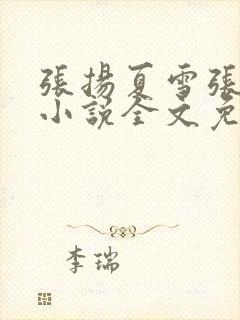 張揚夏雪張
小說全文免
李瑞